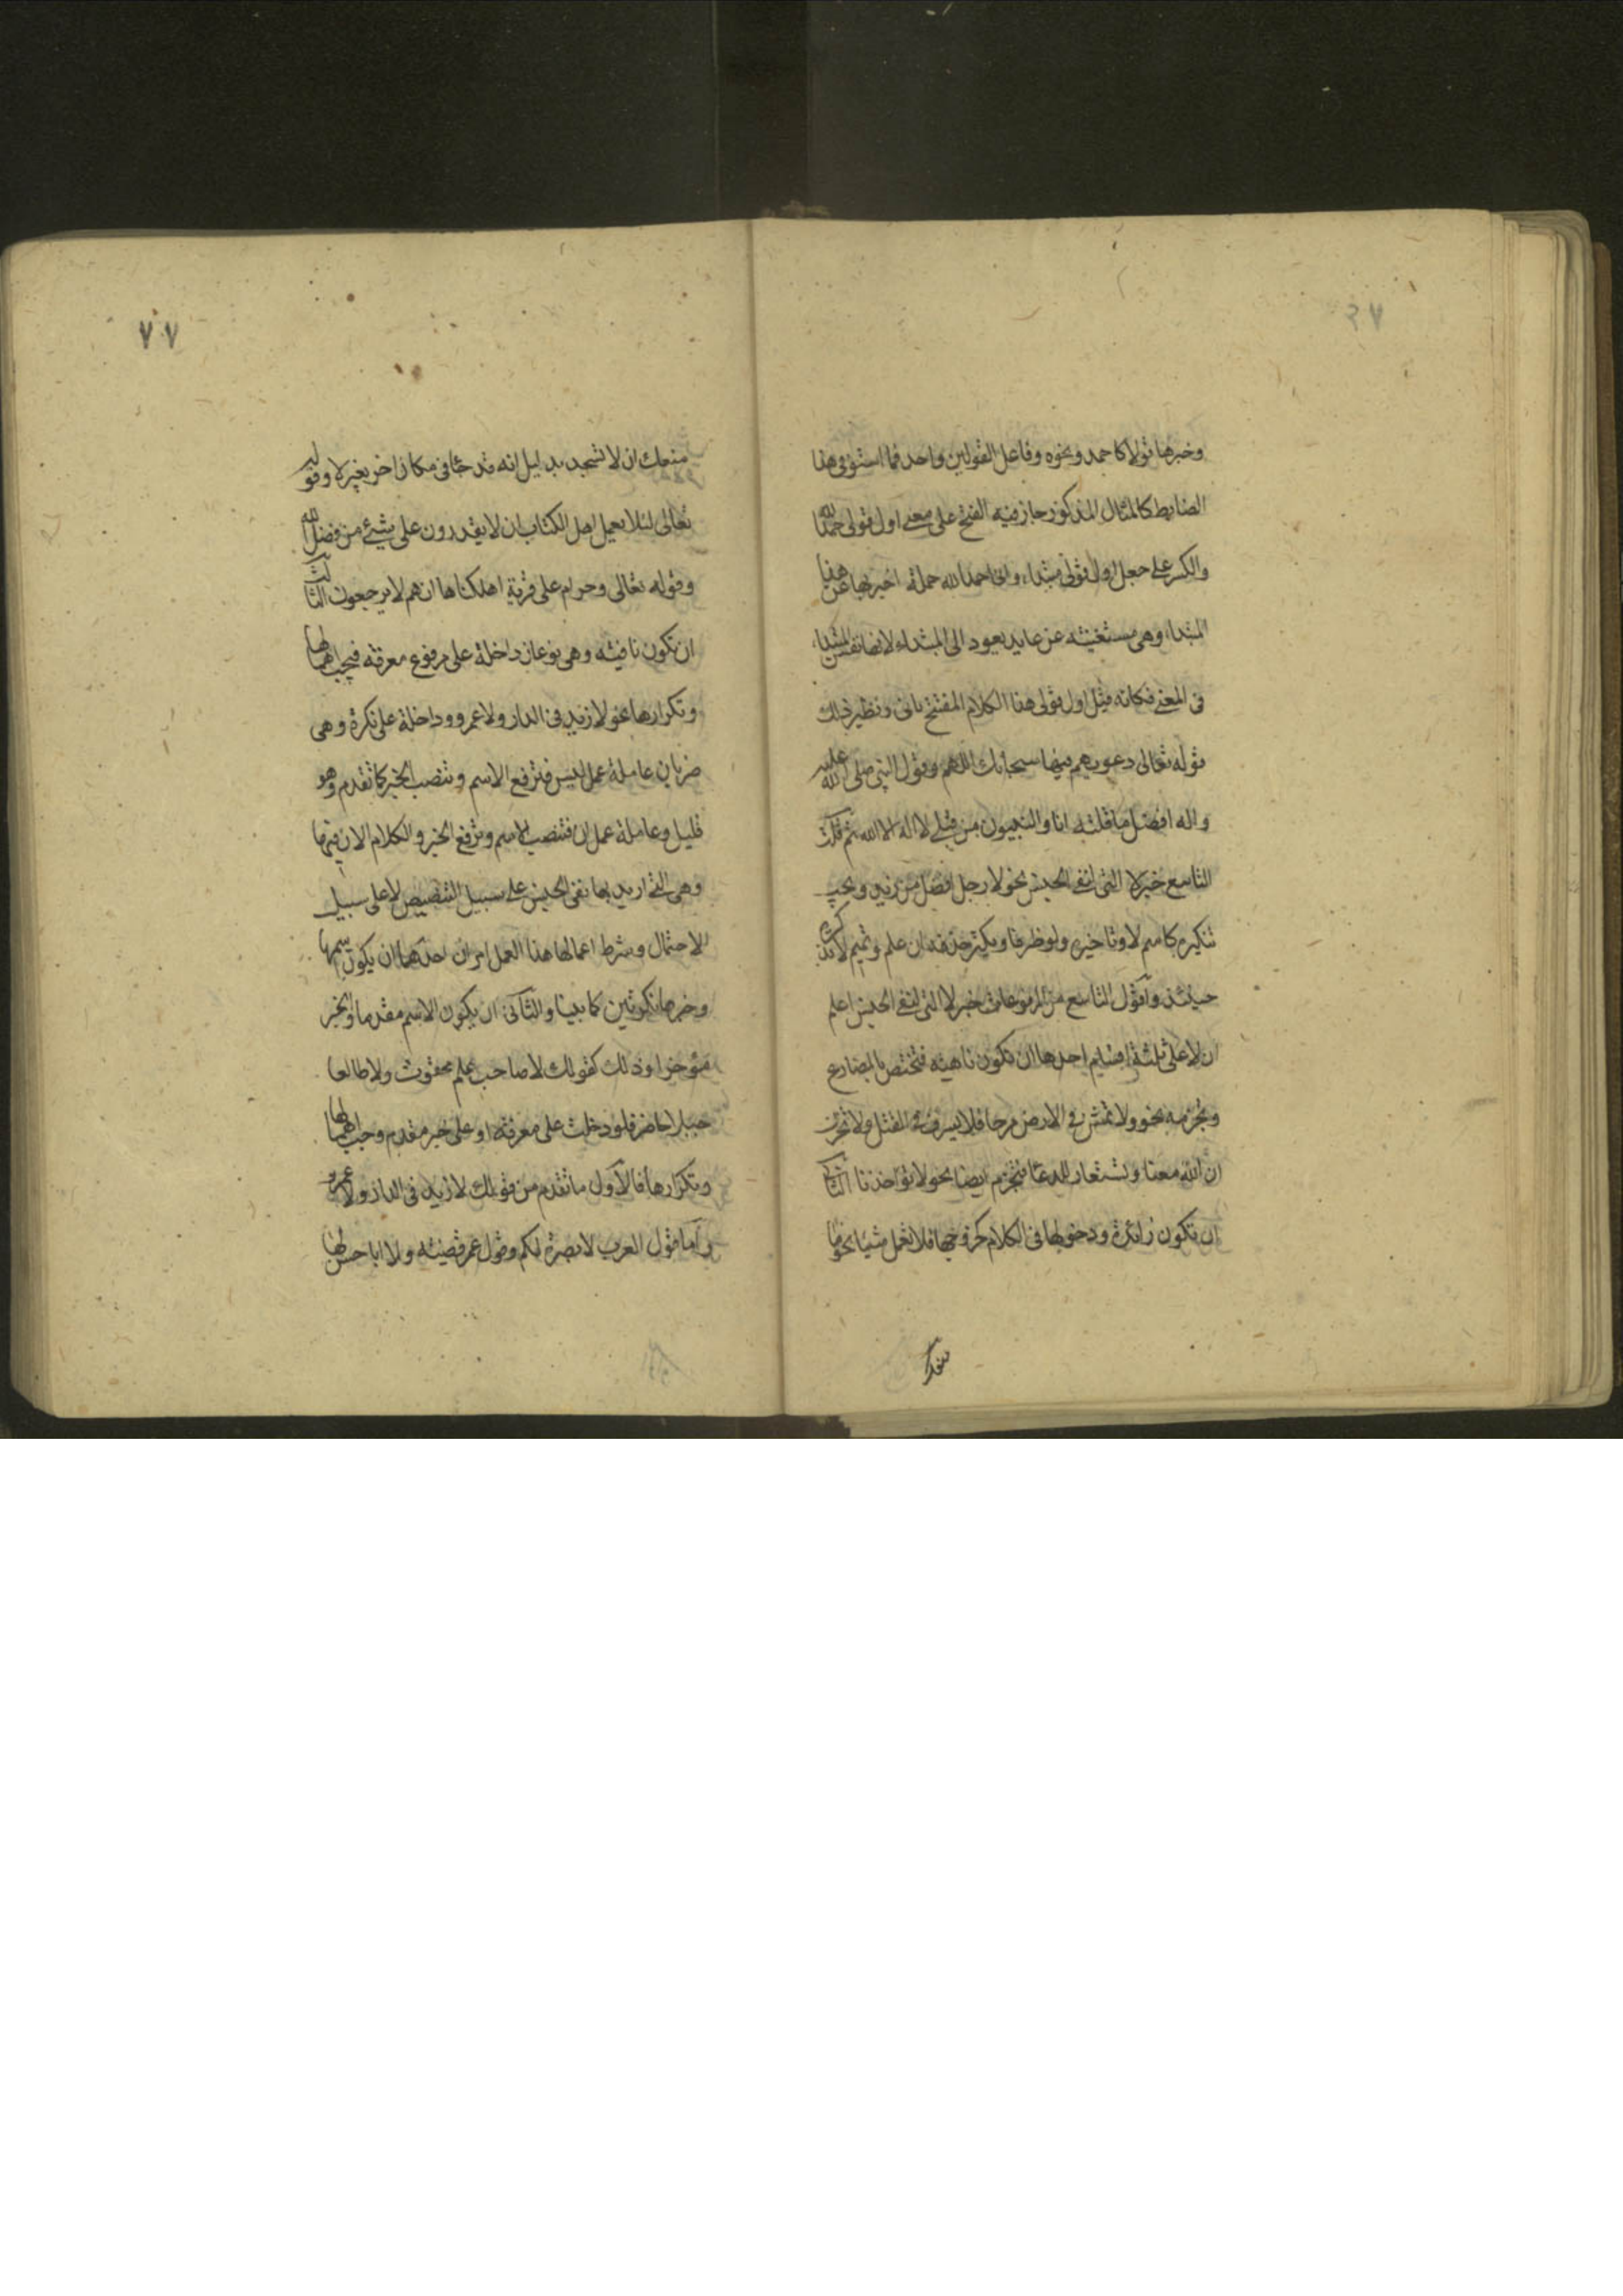 وخبرها قولا كاحمد ونحوه وفاعل القولين واحد فما استوفى هذا
الضابط كالمثال المذكور جاز فيه الفتح على معنى اول قولى حمد الله
والكسر على جعل اول قولى مبتداء وانى احمد الله جملة اخبر بها عن هذا
المبتداء وهى مستغنية عن عايد يعود الى المبتداء لانها نفس المبتداء
فى المعنى فكانه قيل اول قولى هذا الكلام المفتتح بانى ونظير ذلك
قوله تعالى دعويهم فيها سبحانك اللهم وقول النبى صلى الله عليه
واله افضل ما قلته انا والنبيون من قبلى لا اله الا الله ثم قلت
التاسع خبر لا التى لنفى الجنس نحو لا رجل افضل من زيد ويجب
تنكيره كاسم لا وتاخيره ولو ظرفا ويكثر حذفه ان علم وتميم لا تذكره
حينئذ واقول التاسع من المرفوعات خبر لا التى لنفى الجنس اعلم
ان لا على ثلثة اقسام احدها ان تكون ناهية فتختص بالمضارع
وتجزمه نحو ولا تمش فى الارض مرحا فلا يسرف فى القتل ولا تحزن
ان الله معنا وتستعار للدعا فتجزم ايضا نحو لا تؤاخذنا الثانى
ان تكون زائدة ودخولها فى الكلام كخروجها فلا تعمل شيئا نحو ما
منعك
۷۷
منعك ان لا تسجد بدليل انه قد جا فى مكان اخر بغير لا وقوله
تعالى لئلا يعلم اهل الكتاب ان لا يقدرون على شيئ من فضل الله
وقوله تعالى وحرام على قرية اهلكناها انهم لا يرجعون الثالث
ان تكون نافية وهى نوعان داخلة على معرفة فيجب اهمالها
وتكرارها نحو لا زيد فى الدار ولا عمرو وداخلة على نكرة وهى
ضربان عاملة عمل ليس فترفع الاسم وتنصب الخبر كما تقدم وهو
قليل وعاملة عمل ان فتنصب الاسم وترفع الخبر والكلام الان فيها
وهى التى اريد بها نفى الجنس على سبيل التنصيص لا على سبيل
الاحتمال وشرط اعمالها هذا العمل امران احدهما ان يكون اسمها
وخبرها نكرتين كما بينا والثانى ان يكون الاسم مقدما والخبر
مؤخرا وذلك كقولك لا صاحب علم ممقوت ولا طالعا
جبلا حاضر فلو دخلت على معرفة او على خبر مقدم وجب اهمالها
وتكرارها فالاول ما تقدم من قولك لا زيد فى الدار ولا عمرو
واما قول العرب لا بصرة لكم وقول عمر قضية ولا ابا حسن لها